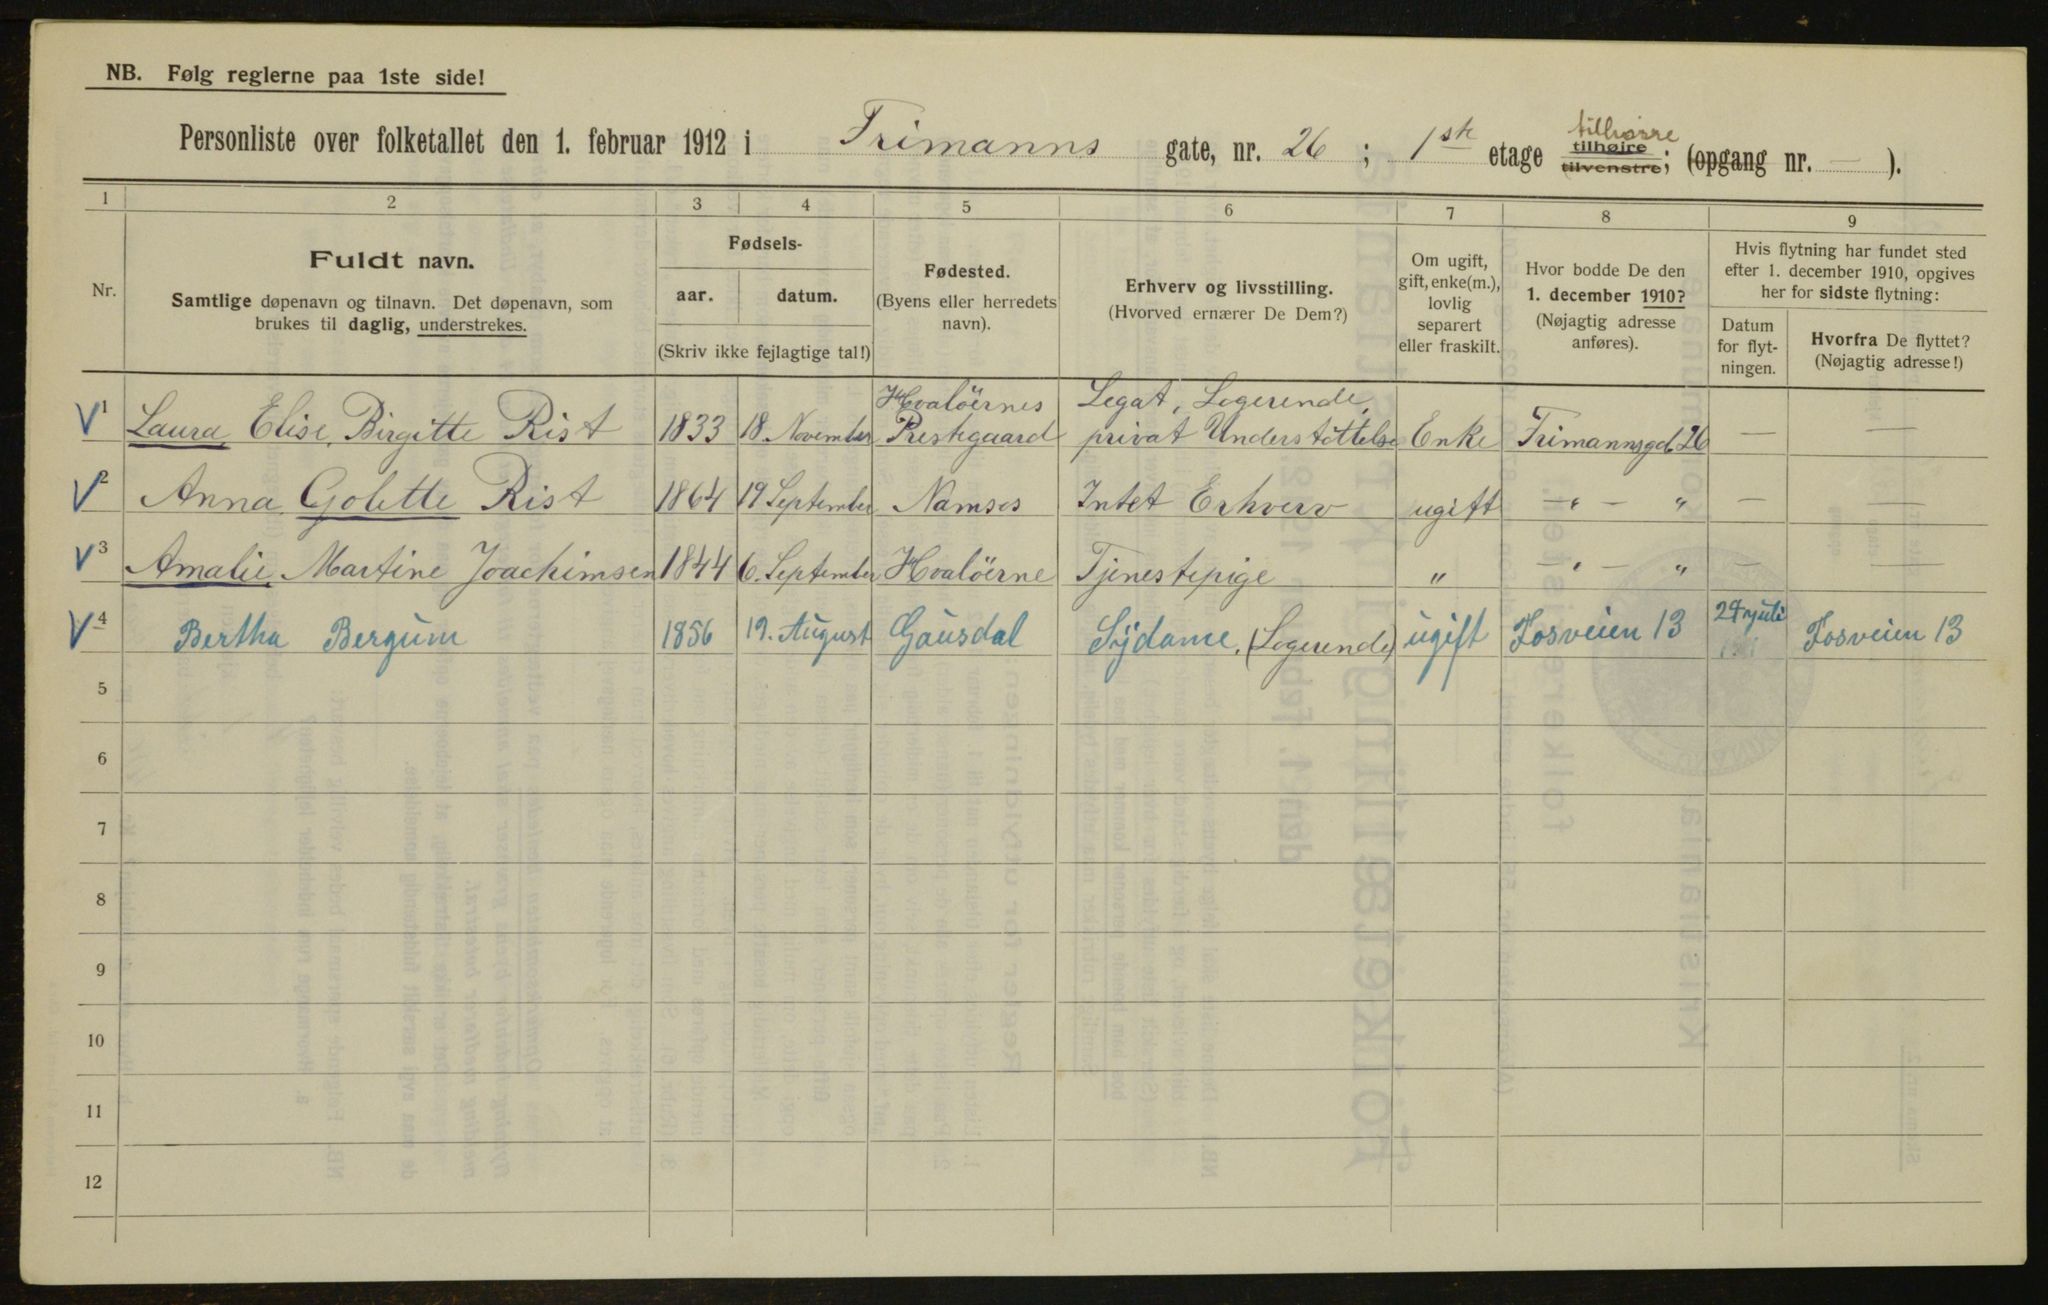 NB. Følg reglerne paa 1ste side!
tilhøire
Personliste over folketallet den 1. februar 1912 i Frimanns gate, nr. 26; 1ste etage tilhøire tilvenstre; (opgang nr. — ).
1 2 3 4 5 6 7 8 9
Nr.
Fuldt navn.
Samtlige døpenavn og tilnavn. Det døpenavn, som
brukes til daglig, understrekes.
Fødsels-
aar. datum.
(Skriv ikke fejlagtige tal!)
Fødested.
(Byens eller herredets
navn).
Erhverv og livsstilling.
(Hvorved ernærer De Dem?)
Om ugift,
gift, enke(m.),
lovlig
separert
eller fraskilt.
Hvor bodde De den
1. december 1910?
(Nøjagtig adresse
anføres).
Hvis flytning har fundet sted
efter 1. december 1910, opgives
her for sidste flytning:
Datum
for flyt-
ningen.
Hvorfra De flyttet?
(Nøjagtig adresse!)
Hvalöernes Legat, Logerende,
V 1 Laura Elise Birgitte Rist 1833 18. November Prestegaard privat Understöttelse Enke Frimannsgd. 26 — —
V 2 Anna Golette Rist 1864 19 September Namsos Intet Erhverv ugift —"— " — —
V 3 Amalie Martine Joachimsen 1844 6. September Hvalöerne Tjenestepige " —"— " — —
V 4 Bertha Bergum 1856 19. August Gausdal Sydame, (Logerende) ugift Fosveien 13 juli 1911 Fosveien 13
5
6
7
8
9
10
11
12